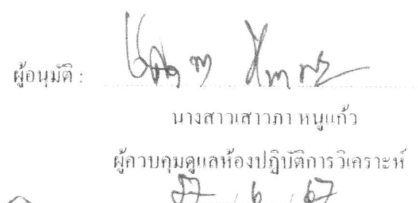 ผู้อนุมัติ :
นางสาวเสาวภา หนูแก้ว
ผู้ควบคุมดูแลห้องปฏิบัติการวิเคราะห์
27 / 6 / 67